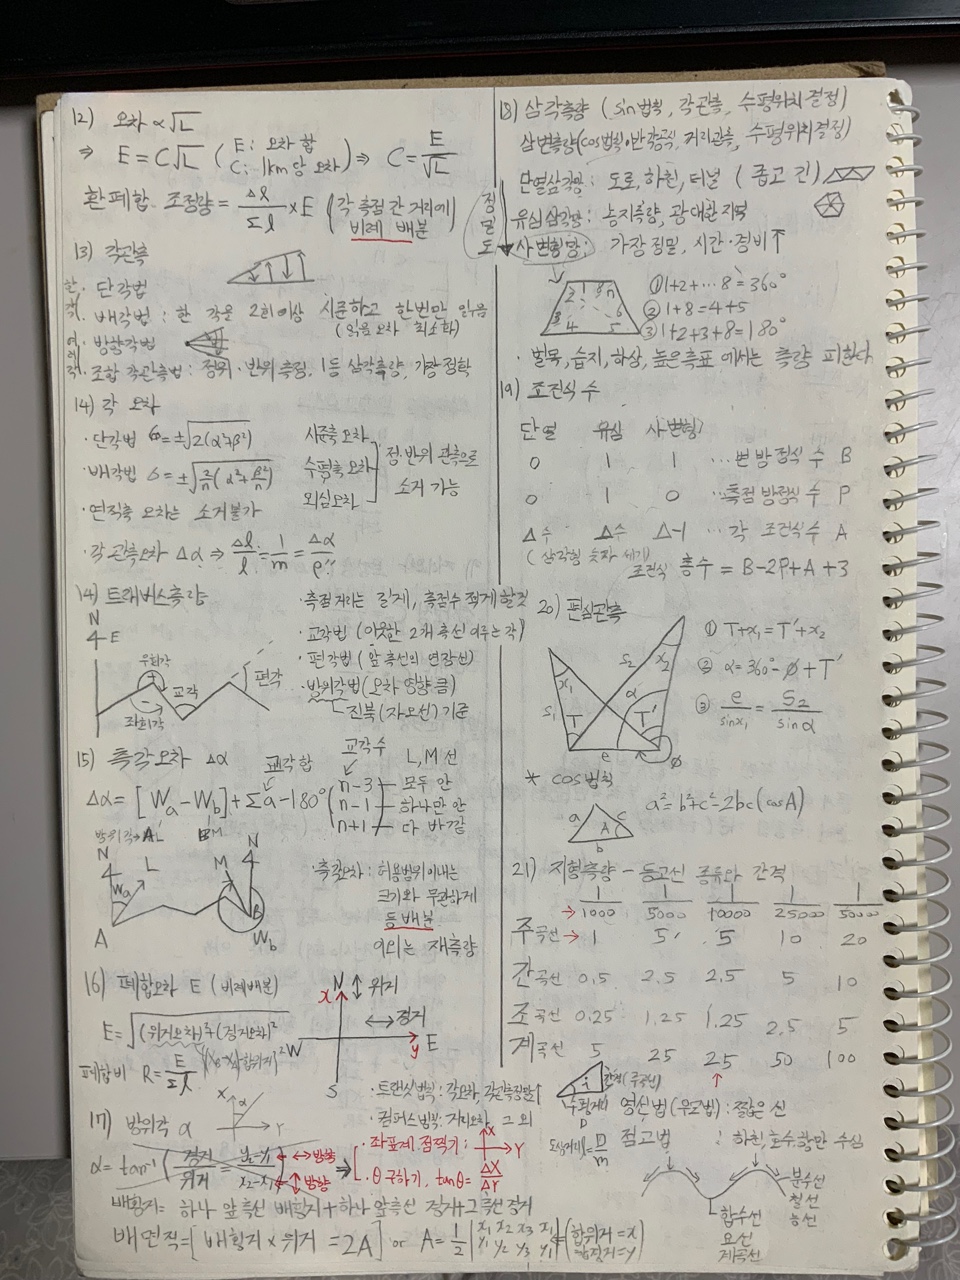 12) 오차 ∝ √L
⇒ E = C√L ( E: 오차 합
C: 1km당 오차 ) ⇒ C = E/√L
환폐합 조정량 = Δl/Σl × E ( 각 측점 간 거리에
비례 배분 )
13) 각관측
· 단각법
· 배각법 : 한 각을 2회이상 시준하고 한번만 읽음
(읽음오차 최소화)
· 방향각법
· 조합 각관측법 : 정위·반위 측정, 1등 삼각측량, 가장 정확
14) 각 오차
· 단각법 σ = ±√2(α²+β²)
· 배각법 σ = ±√2/n(α²+β²/n)
시준축 오차
수평축 오차
외심오차
정·반위 관측으로
소거 가능
· 연직축 오차는 소거불가
· 각관측오차 Δα ⇒ Δl/l = 1/m = Δα/ρ″
14) 트래버스측량
N
E
우회각
교각
좌회각
편각
· 측점거리는 길게, 측점수 적게 할것
· 교각법 (이웃한 2개 측선 이루는 각)
· 편각법 (앞 측선의 연장선)
· 방위각법 (오차 영향 큼)
진북(자오선) 기준
15) 측각오차 Δα
교각합 교각수 L, M 선
Δα = [Wa - Wb] + Σa - 180° ( n-3 모두 안
n-1 하나만 안
n+1 다 바깥
방위각→ AL BM
N L M N
Wa
A B Wb
· 측각오차 : 허용범위 이내는
크기와 무관하게
등배분
이외는 재측량
16) 폐합오차 E (비례배분)
E = √(위거오차)²+(경거오차)²
폐합비 R = E/Σl
N x 위거
경거
W y E
S
· 트랜싯법칙 : 각오차, 각관측정밀↑
· 컴퍼스법칙 : 거리오차, 그 외
17) 방위각 α
X α Y
α = tan⁻¹( 경거/위거 = y₂-y₁/x₂-x₁ ) ⇒
· 좌표계 점찍기 : X Y
· θ 구하기, tanθ = ΔX/ΔY
배횡거 = 하나 앞측선 배횡거 + 하나 앞측선 경거 + 그측선 경거
배면적 = [배횡거 × 위거 = 2A] or A = 1/2 | x₁ x₂ x₃ x₁
y₁ y₂ y₃ y₁ | (합위거 = x
합경거 = y)
18) 삼각측량 (sin법칙, 각관측, 수평위치결정)
삼변측량 (cos법칙·반각공식, 거리관측, 수평위치결정)
정
밀
도
단열삼각망 : 도로, 하천, 터널 (좁고 긴)
유심삼각망 : 농지측량, 광대한 지역
사변형망 : 가장 정밀, 시간·경비↑
2 1 8 7
3 6
4 5
① 1+2+…8 = 360°
② 1+8 = 4+5
③ 1+2+3+8 = 180°
· 벌목, 습지, 하상, 높은측표 에서는 측량 피한다
19) 조건식 수
단열 유심 사변형
0 1 1 … 변 방정식 수 B
0 1 0 … 측점 방정식 수 P
Δ수 Δ수 Δ-1 … 각 조건식수 A
(삼각형 숫자 세기)
조건식 총수 = B-2P+A+3
20) 편심관측
x₁ S₂ x₂
S₁ T α T′
e φ
① T+x₁ = T′+x₂
② α = 360° - φ + T′
③ e/sinx₁ = S₂/sinα
* cos법칙
a c A b
a² = b²+c²-2bc(cosA)
21) 지형측량 - 등고선 종류와 간격
→ 1/1000 1/5000 1/10000 1/25000 1/50000
주곡선 → 1 5 5 10 20
간곡선 0.5 2.5 2.5 5 10
조곡선 0.25 1.25 1.25 2.5 5
계곡선 5 25 25 50 100
영선법 (우모법) : 짧은 선
점고법 : 하천, 호수, 항만 수심
합수선
요선
계곡선
분수선
철선
능선